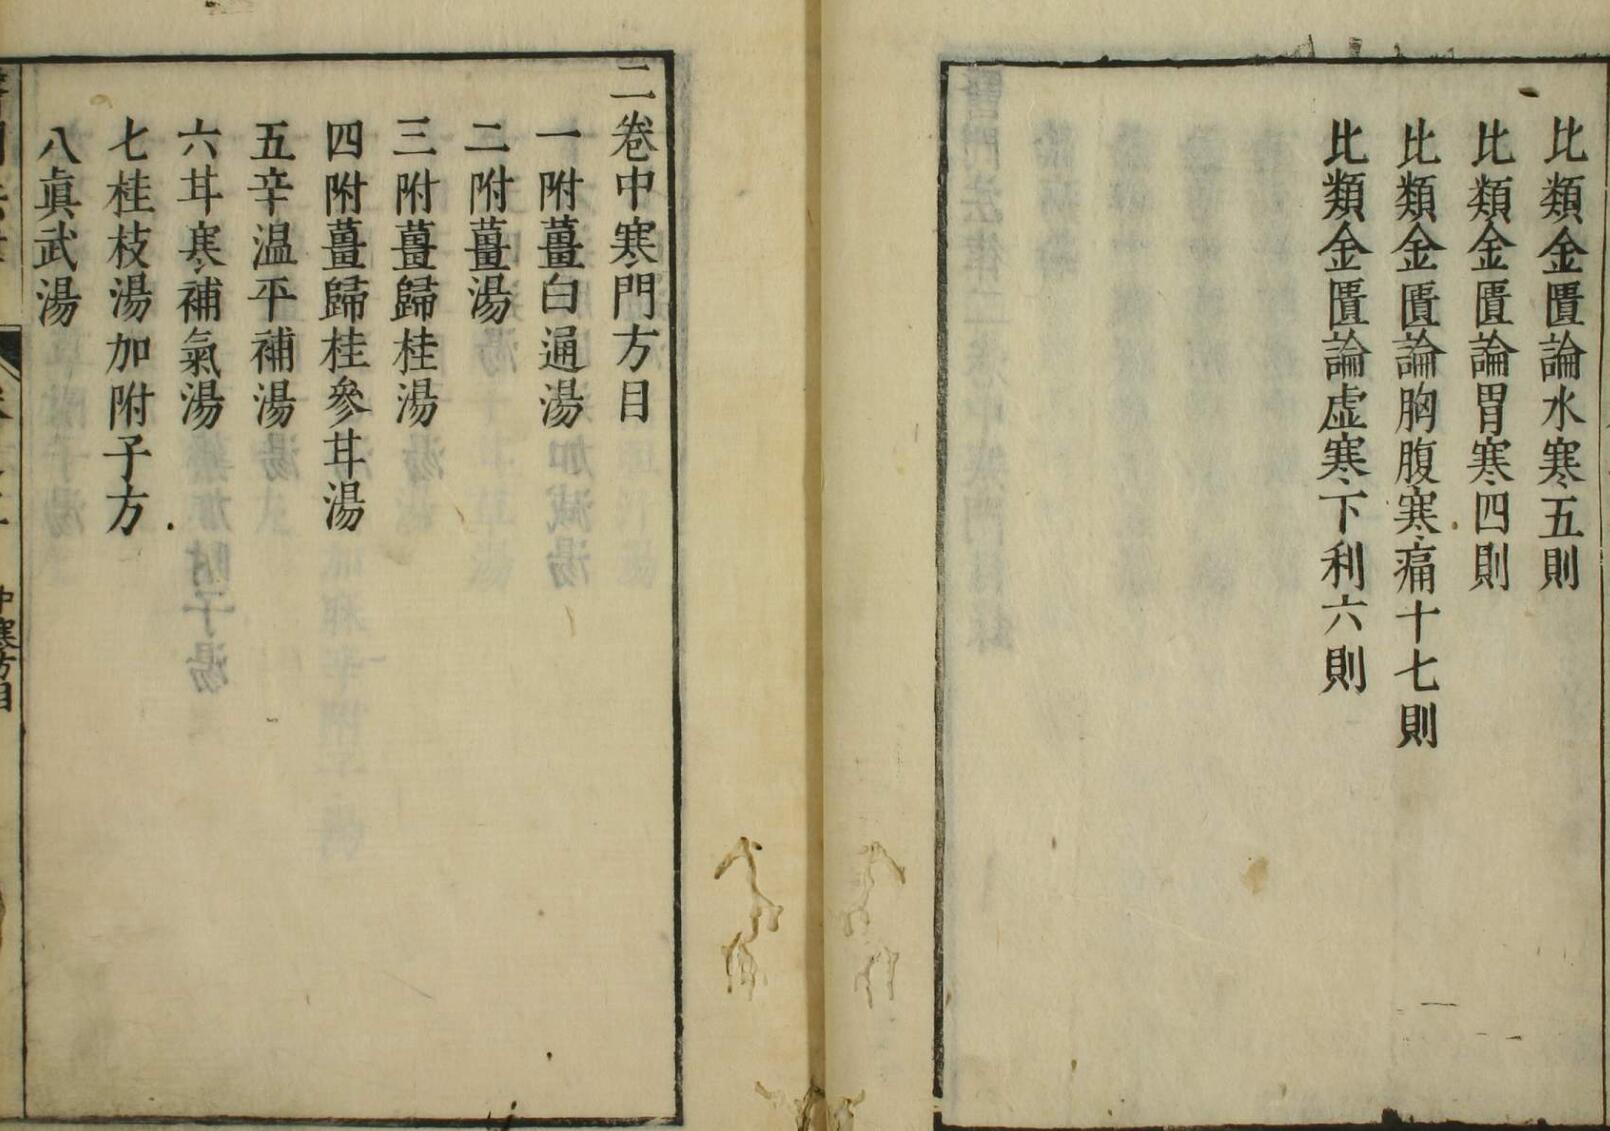 比類金匱論水寒五則
比類金匱論胃寒四則
比類金匱論胸腹寒痛十七則
比類金匱論虚寒下利六則
二卷中寒門方目
一附薑白通湯
二附薑湯
三附薑歸桂湯
四附薑歸桂參茸湯
五辛温平補湯
六茸寒補氣湯
七桂枝湯加附子方
八眞武湯
中寒方目